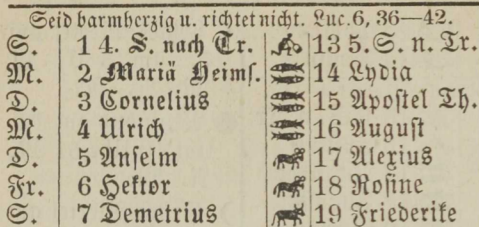 Seid barmherzig u. richtet nicht. Luc. 6, 36—42.
S. 1 4. S. nach Tr. 13 5. S. n. Tr.
M. 2 Mariä Heims. 14 Lydia
D. 3 Cornelius 15 Apostel Th.
M. 4 Ulrich 16 August
D. 5 Anselm 17 Alexius
Fr. 6 Hektor 18 Rosine
S. 7 Demetrius 19 Friederike